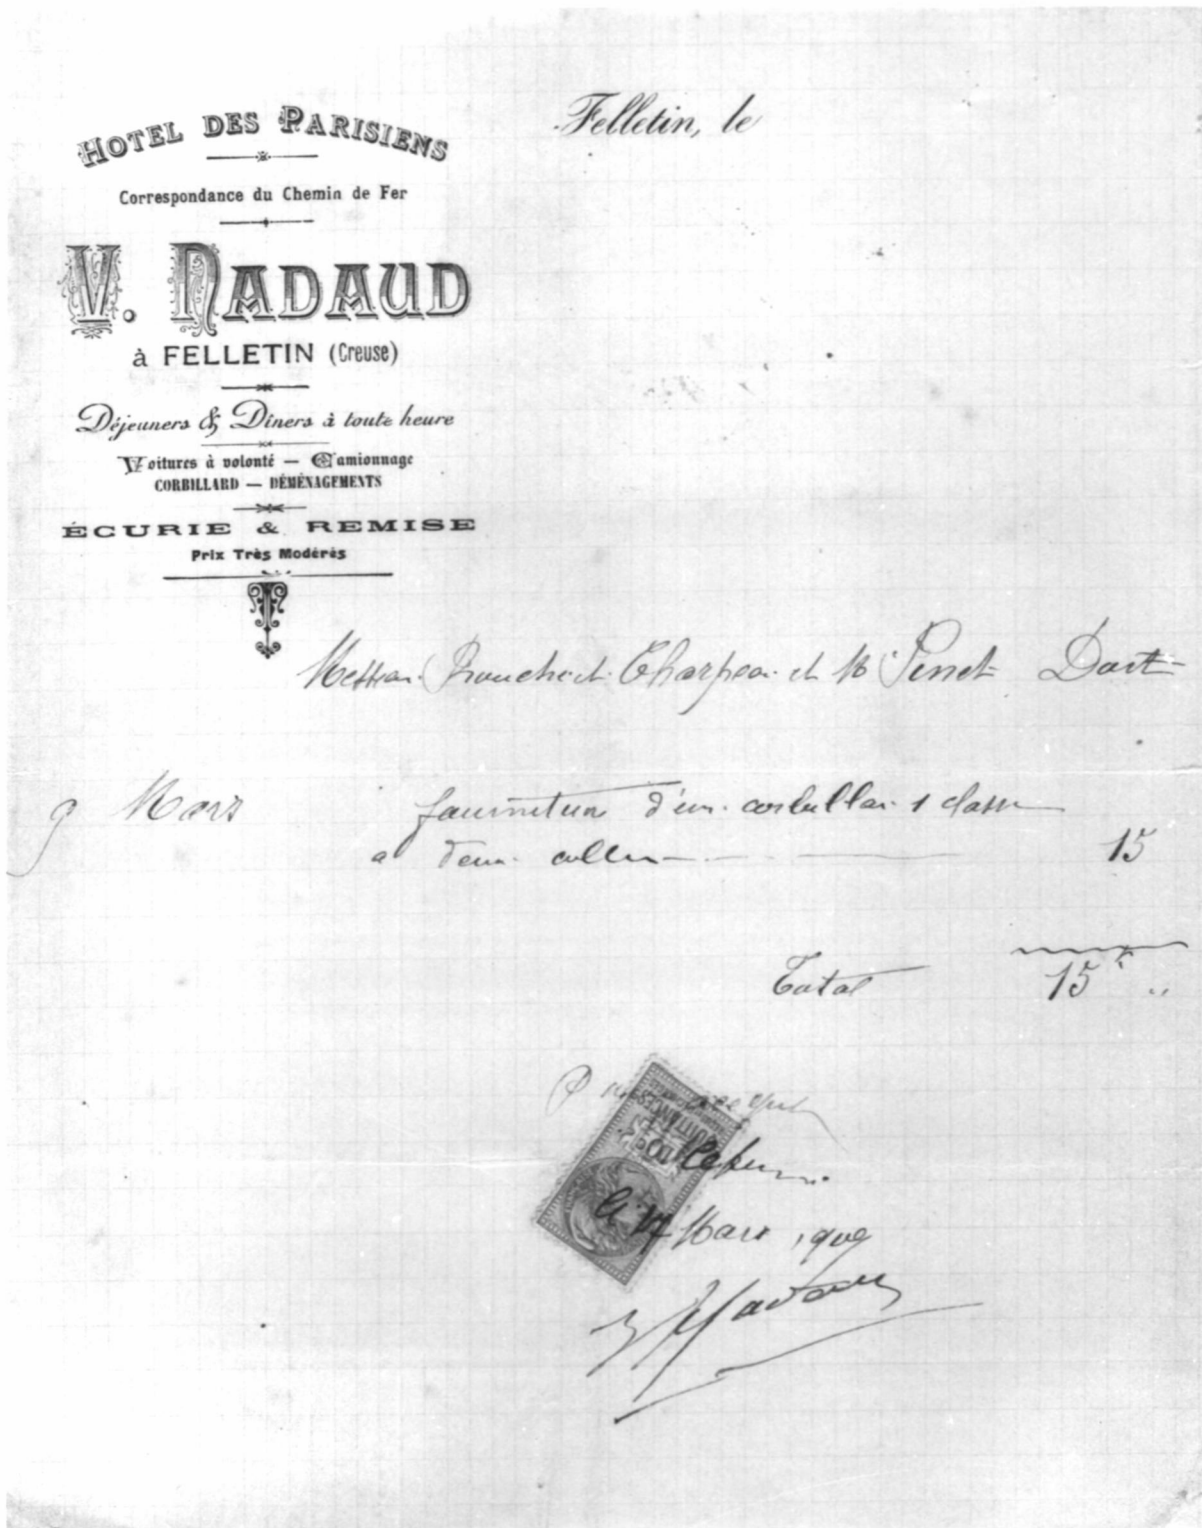 HOTEL DES PARISIENS
Correspondance du Chemin de Fer
V. NADAUD
à FELLETIN (Creuse)
Déjeuners & Dîners à toute heure
Voitures à volonté — Camionnage
CORBILLARD — DÉMÉNAGEMENTS
ÉCURIE & REMISE
Prix Très Modérés
Felletin, le
et Pinet Doit
9 Mars fourniture d'un corbillar 1 classe
a deux 15
Total 15 f "
P
le 17 Mars
V Nadaud